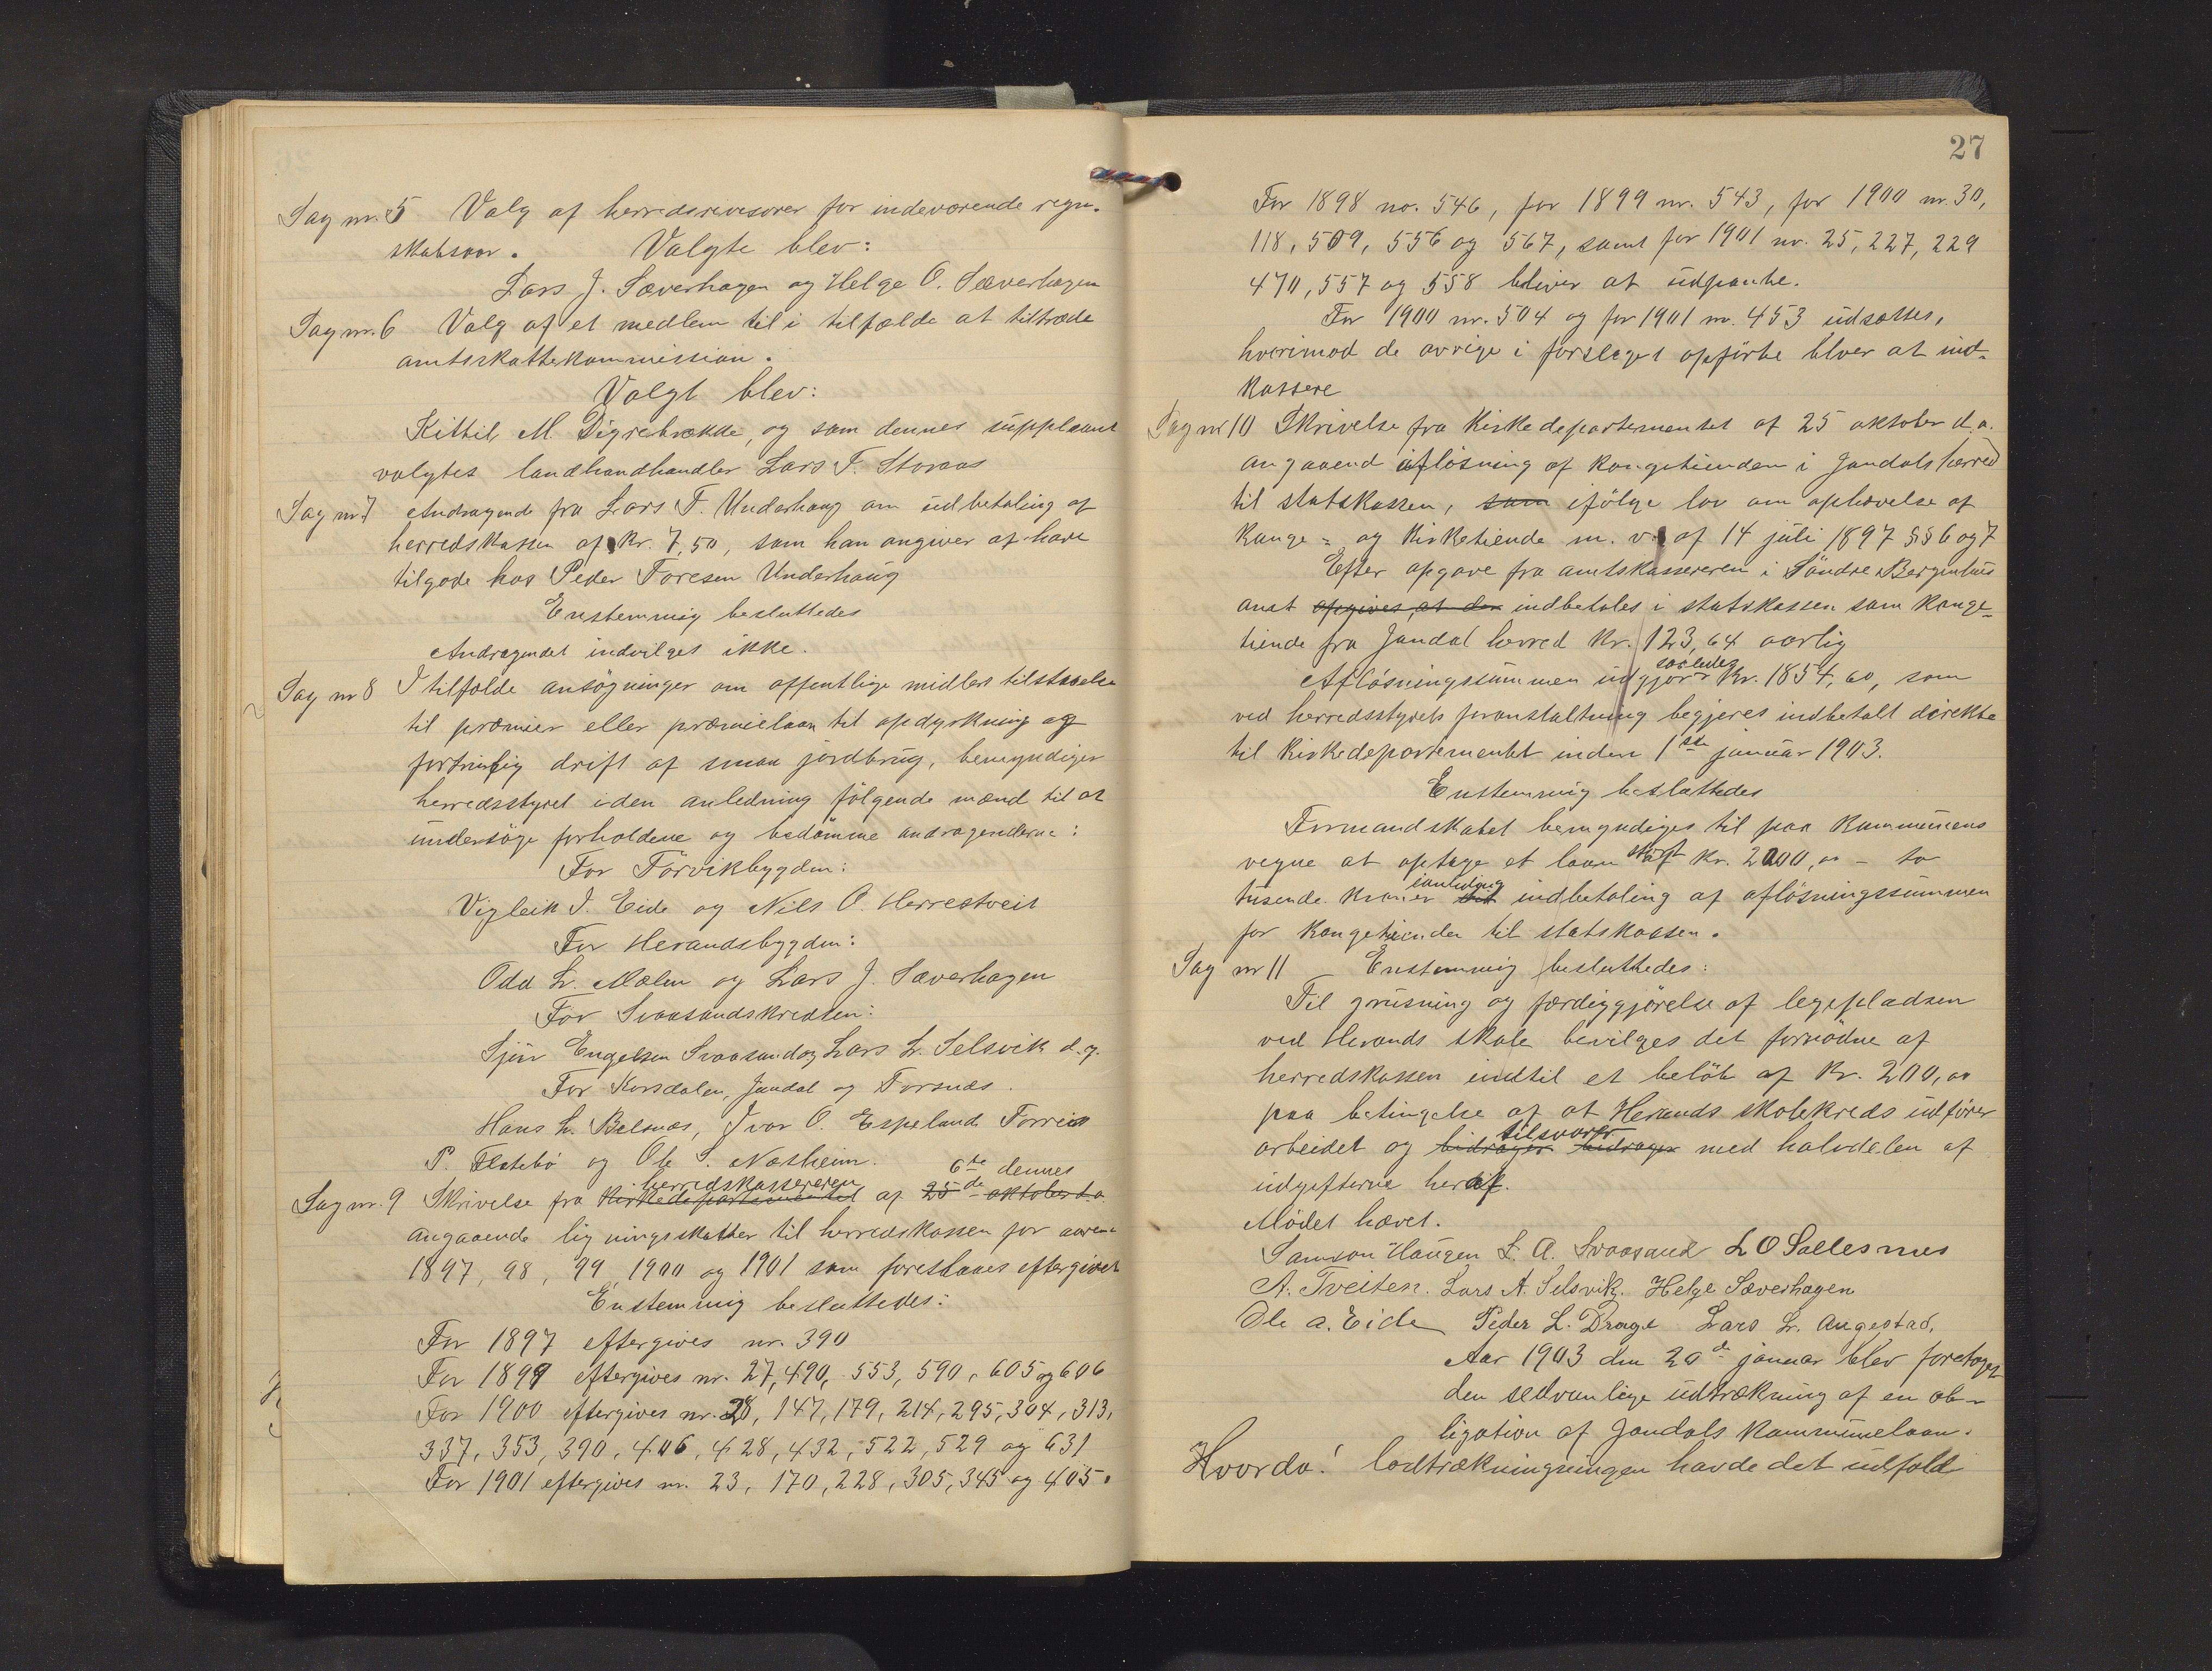 Sag nr. 5 Valg af herredsrevisorer for indeværende regn-
skabsaar. Valgte blev:
Lars J. Sæverhagen og Helge O. Sæverhagen
Sag nr. 6 Valg af et medlem til i tilfælde at tiltræde
amtsskattekommission.
Valgt blev:
Kittil M. Digrebrække, og som dennes suppleant
valgtes landhandhandler Lars T. Storaas
Sag nr 7 Andragende fra Lars T. Underhaug om udbetaling af
herredskassen af Kr. 7,50, som han angiver at have
tilgode hos Peder Toresen Underhaug
Enstemmig besluttedes
Andragendet indvilges ikke.
Sag nr 8 I tilfælde ansøgninger om offentlige midlers tilstaaelse
til præmier eller præmielaan til opdyrkning og
fortrinlig drift af smaa jordbrug, bemyndiger
herredsstyret i den anledning følgende mænd til at
undersøge forholdene og bedømme andragenderne:
For Törvikbygden:
Vigleik J. Eide og Nils O. Herrestveit
For Herandsbygden:
Odd L. Mælen og Lars J. Sæverhagen
For Svaasandskredsen:
Sjur Engelsen Svaasand og Lars L. Selsvik d.y.
For Korsdalen, Jondal og Torsnæs.
Hans L. Belsnæs, Ivar O. Espeland Torreis
P. Flatebø og Ole S. Næsheim.
6te dennes
herredskassereren
Sag nr. 9 Skrivelse fra Kirkedepartementet af 25de oktober d.a.
angaaende ligningsskatter til herredskassen for aarene
1897, 98, 99, 1900 og 1901 som foreslaaes eftergivet
Enstemmig besluttedes:
For 1897 eftergives nr. 390
For 1899 eftergives nr. 27, 490, 553, 590, 605 og 606
For 1900 eftergives nr. 28, 147, 179, 214, 295, 304, 313,
337, 353, 390, 406, 428, 432, 522, 529 og 631
For 1901 eftergives nr. 23, 170, 228, 305, 345 og 405.
27
For 1898 no. 546, for 1899 nr. 543, for 1900 nr. 30,
118, 509, 556 og 567, samt for 1901 nr. 25, 227, 229
470, 557 og 558 bliver at udpante.
For 1900 nr. 504 og for 1901 nr. 453 udsættes,
hverimod de øvrige i forslaget opførte blver at ind-
kassere
Sag nr 10 Skrivelse fra Kirkedepartementet af 25 oktober d.a.
angaaend afløsning af kongetienden i Jondals herred
til statskassen, som ifølge lov om ophævelse af
Konge- og Kirketiende m. v. af 14 juli 1897 §§ 6 og 7
Efter opgave fra amtskassereren i Søndre Bergenhus
amt opgives, at der indbetales i statskassen som Konge-
tiende fra Jondal herred Kr. 123,64 aarlig
saaledes
Afløsningssummen udgjør Kr. 1854,60, som
ved herredsstyrets foranstaltning begjeres indbetalt direkte
til Kirkedepartementet inden 1ste januar 1903.
Enstemmig besluttedes
Formandskabet bemyndiges til paa kommunens
vegne at optage et laan stort Kr. 2000,00 – to
ianledning
tusende kroner til indbetaling af afløsningssummen
for kongetienden til statskassen.
Sag nr 11 Enstemmig besluttedes:
Til grusning og færdiggjørelse af legepladsen
ved Herands skole bevilges det fornødne af
herredskassen indtil et beløb af Kr. 200,00
paa betingelse af at Herands skolekreds udfører
tilsvarer
arbeidet og bidrager bidrager med halvdelen af
udgifterne heraf.
Mødet hævet.
Samson Haugen L. A. Svaasand L O Sallesnes
A. Tveiten. Lars A. Selsvik. Helge Sæverhagen
Ole A. Eide Peder L. Drage Lars L. Augestad.
Aar 1903 den 20de januar blev foretaget
den sedvanlige udtrækning af en ob-
ligation af Jondals kommunelaan.
Hvorda! lodtrækningningen havde det udfald